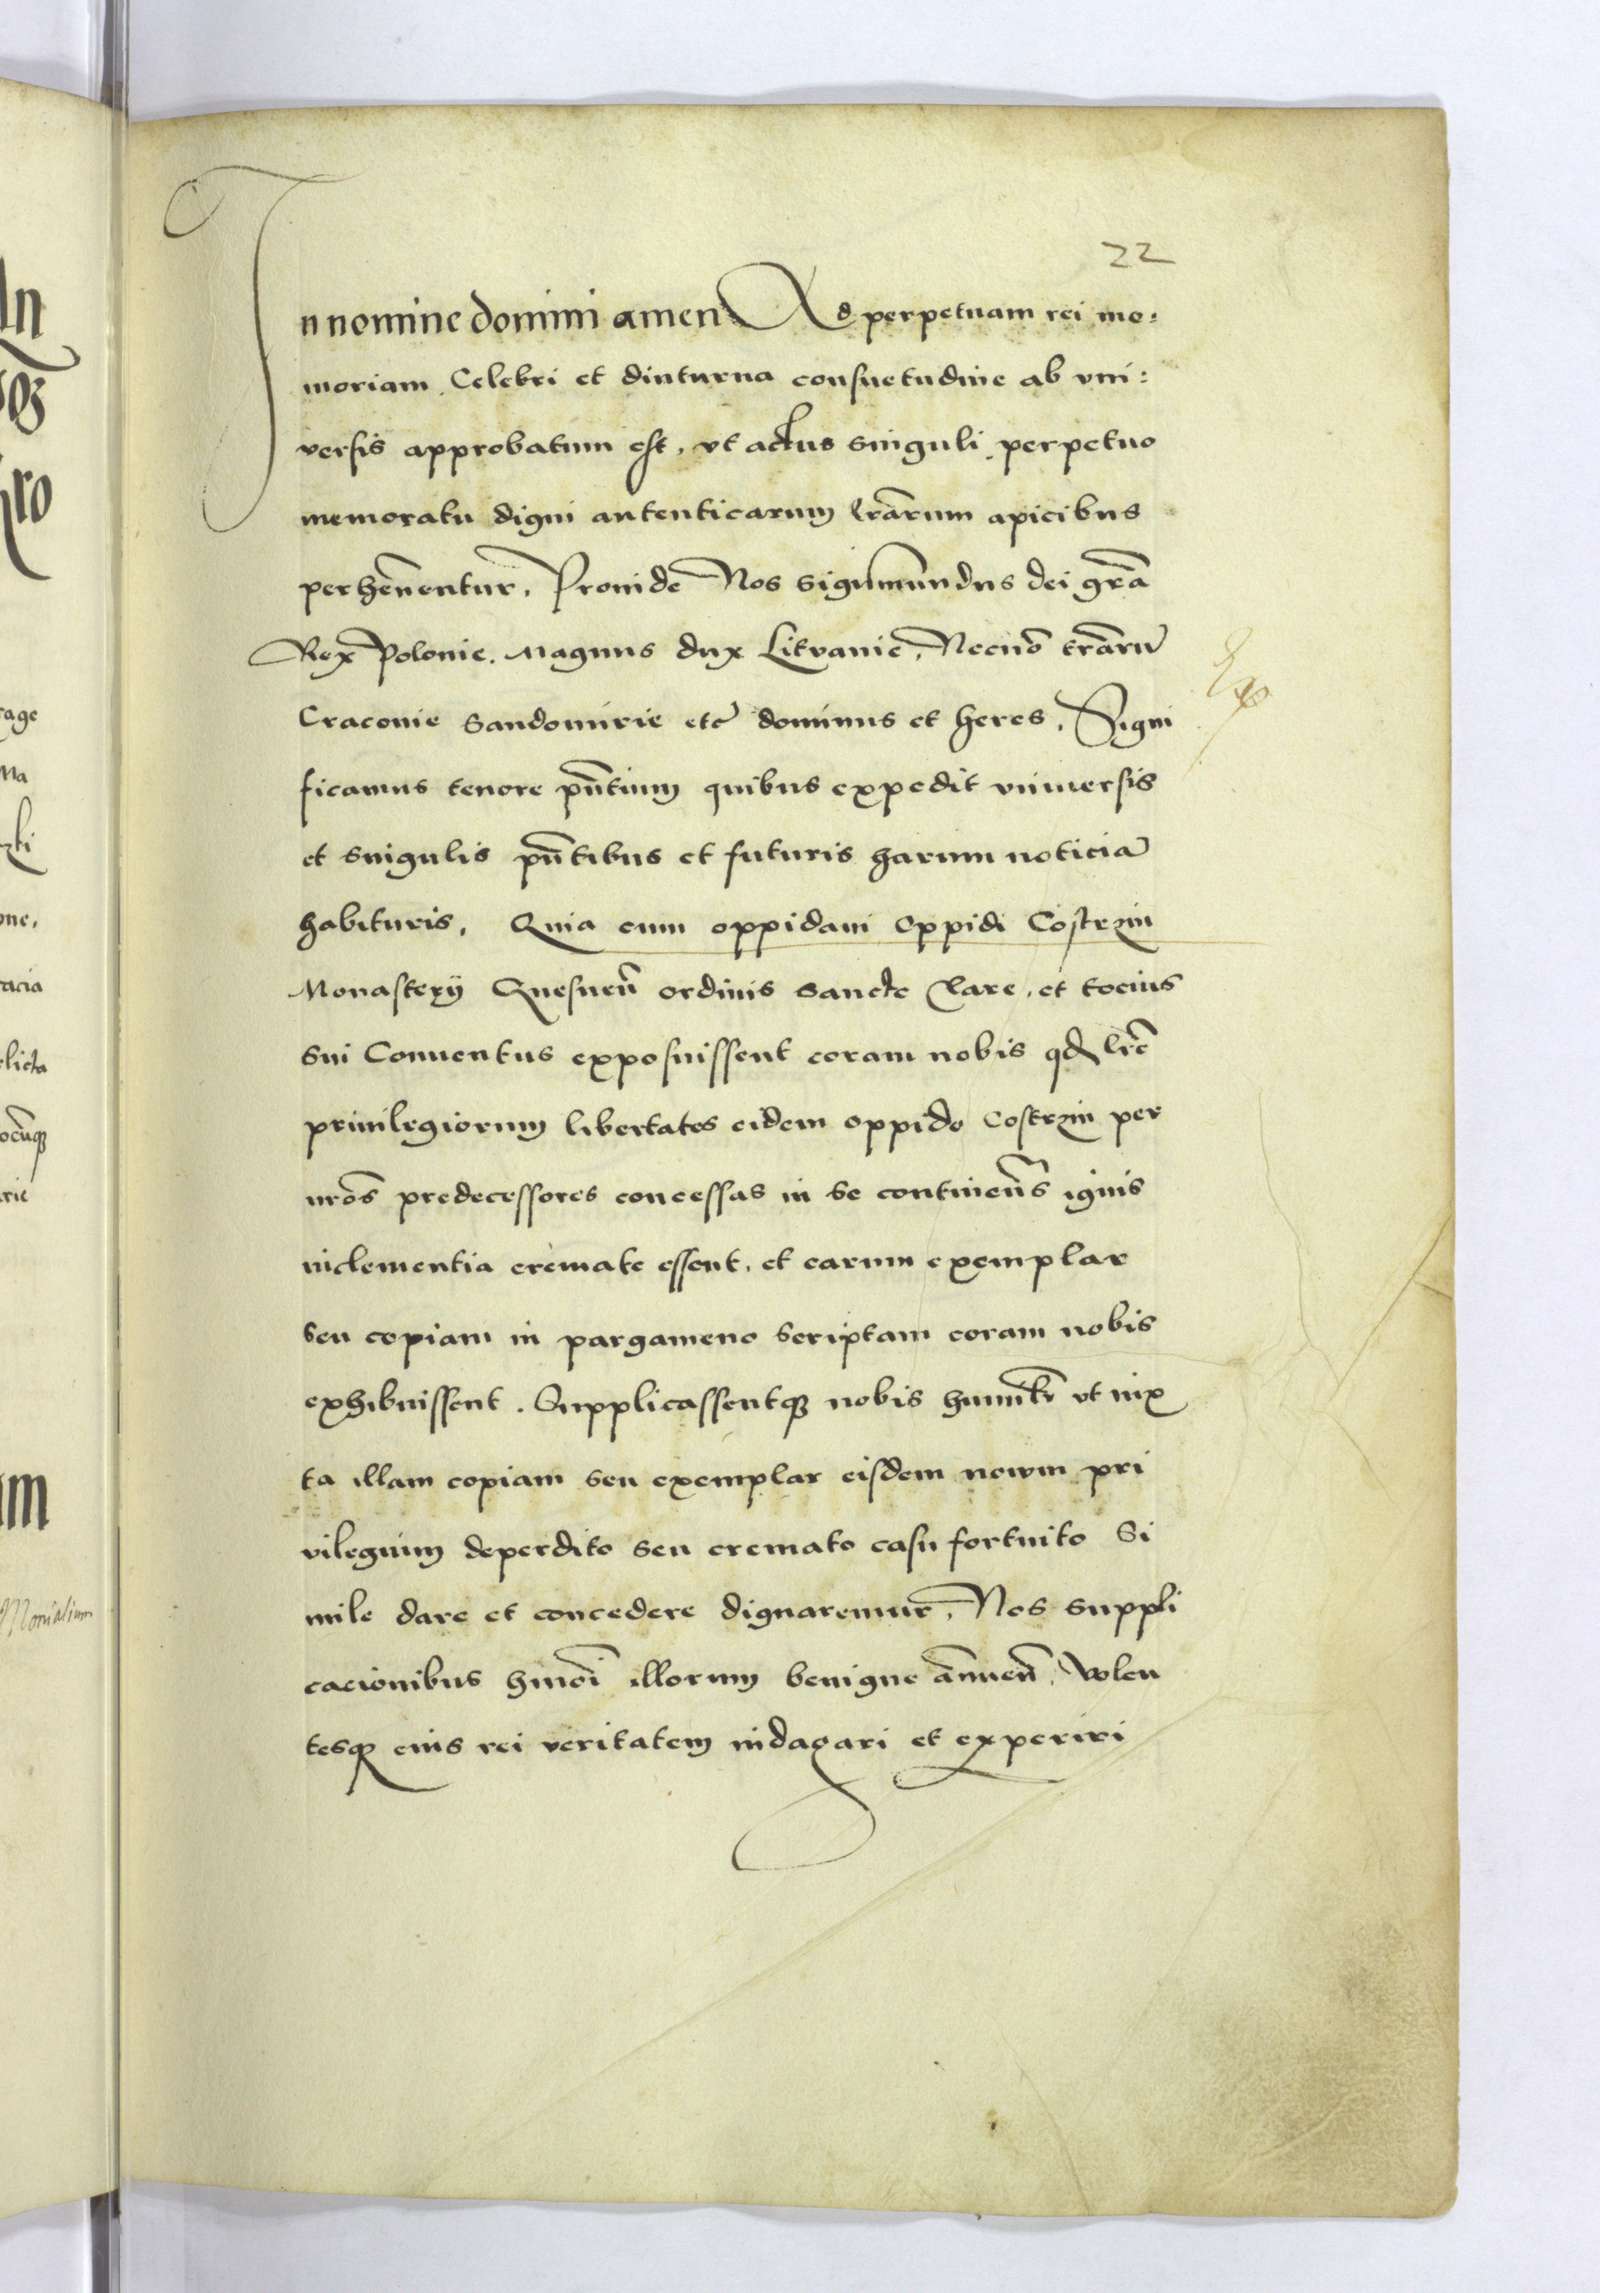 22
In nomine domini amen Ad perpetuam rei me:
moriam. Celebri et diuturna consuetudine ab vni:
versis approbatum est, vt actus singuli perpetuo
memoratu digni autenticarum lr̄arum apicibus
perhēnentur, Proinde Nos Sigismundus dei gr̄a
Rex Polonie. Magnus dux Litvanie, Necnō tr̄arū
Craconie Sandomirie etc̄ dominus et heres, Signi
ficamus tenore pn̄tium quibus expedit vniuersis
et singulis pn̄tibus et futuris harum noticiā
habituris, Quia cum oppidani Oppidi Costrzin
Monastery Gnesnen̄ ordinis Sancte Clare, et tocius
sui Conuentus exposuissent coram nobis qd lr̄e
priuilegiorum libertates eidem oppido Costrzin per
nr̄os predecessores concessas in se continen̄s ignis
inclementia cremate essent, et earum exemplar
seu copiam in pargameno scriptam coram nobis
exhibuissent. Supplicassentqꝫ nobis humilr̄ vt iux
ta illam copiam seu exemplar eisdem nowm pri
vilegium deperdito seu cremato casu fortuito Si
mile dare et concedere dignaremur, Nos suppli
cacionibus hmōi illorum benigne an̄nuen̄, Wolen
tesqꝫ eius rei veritatem indagari et experiri